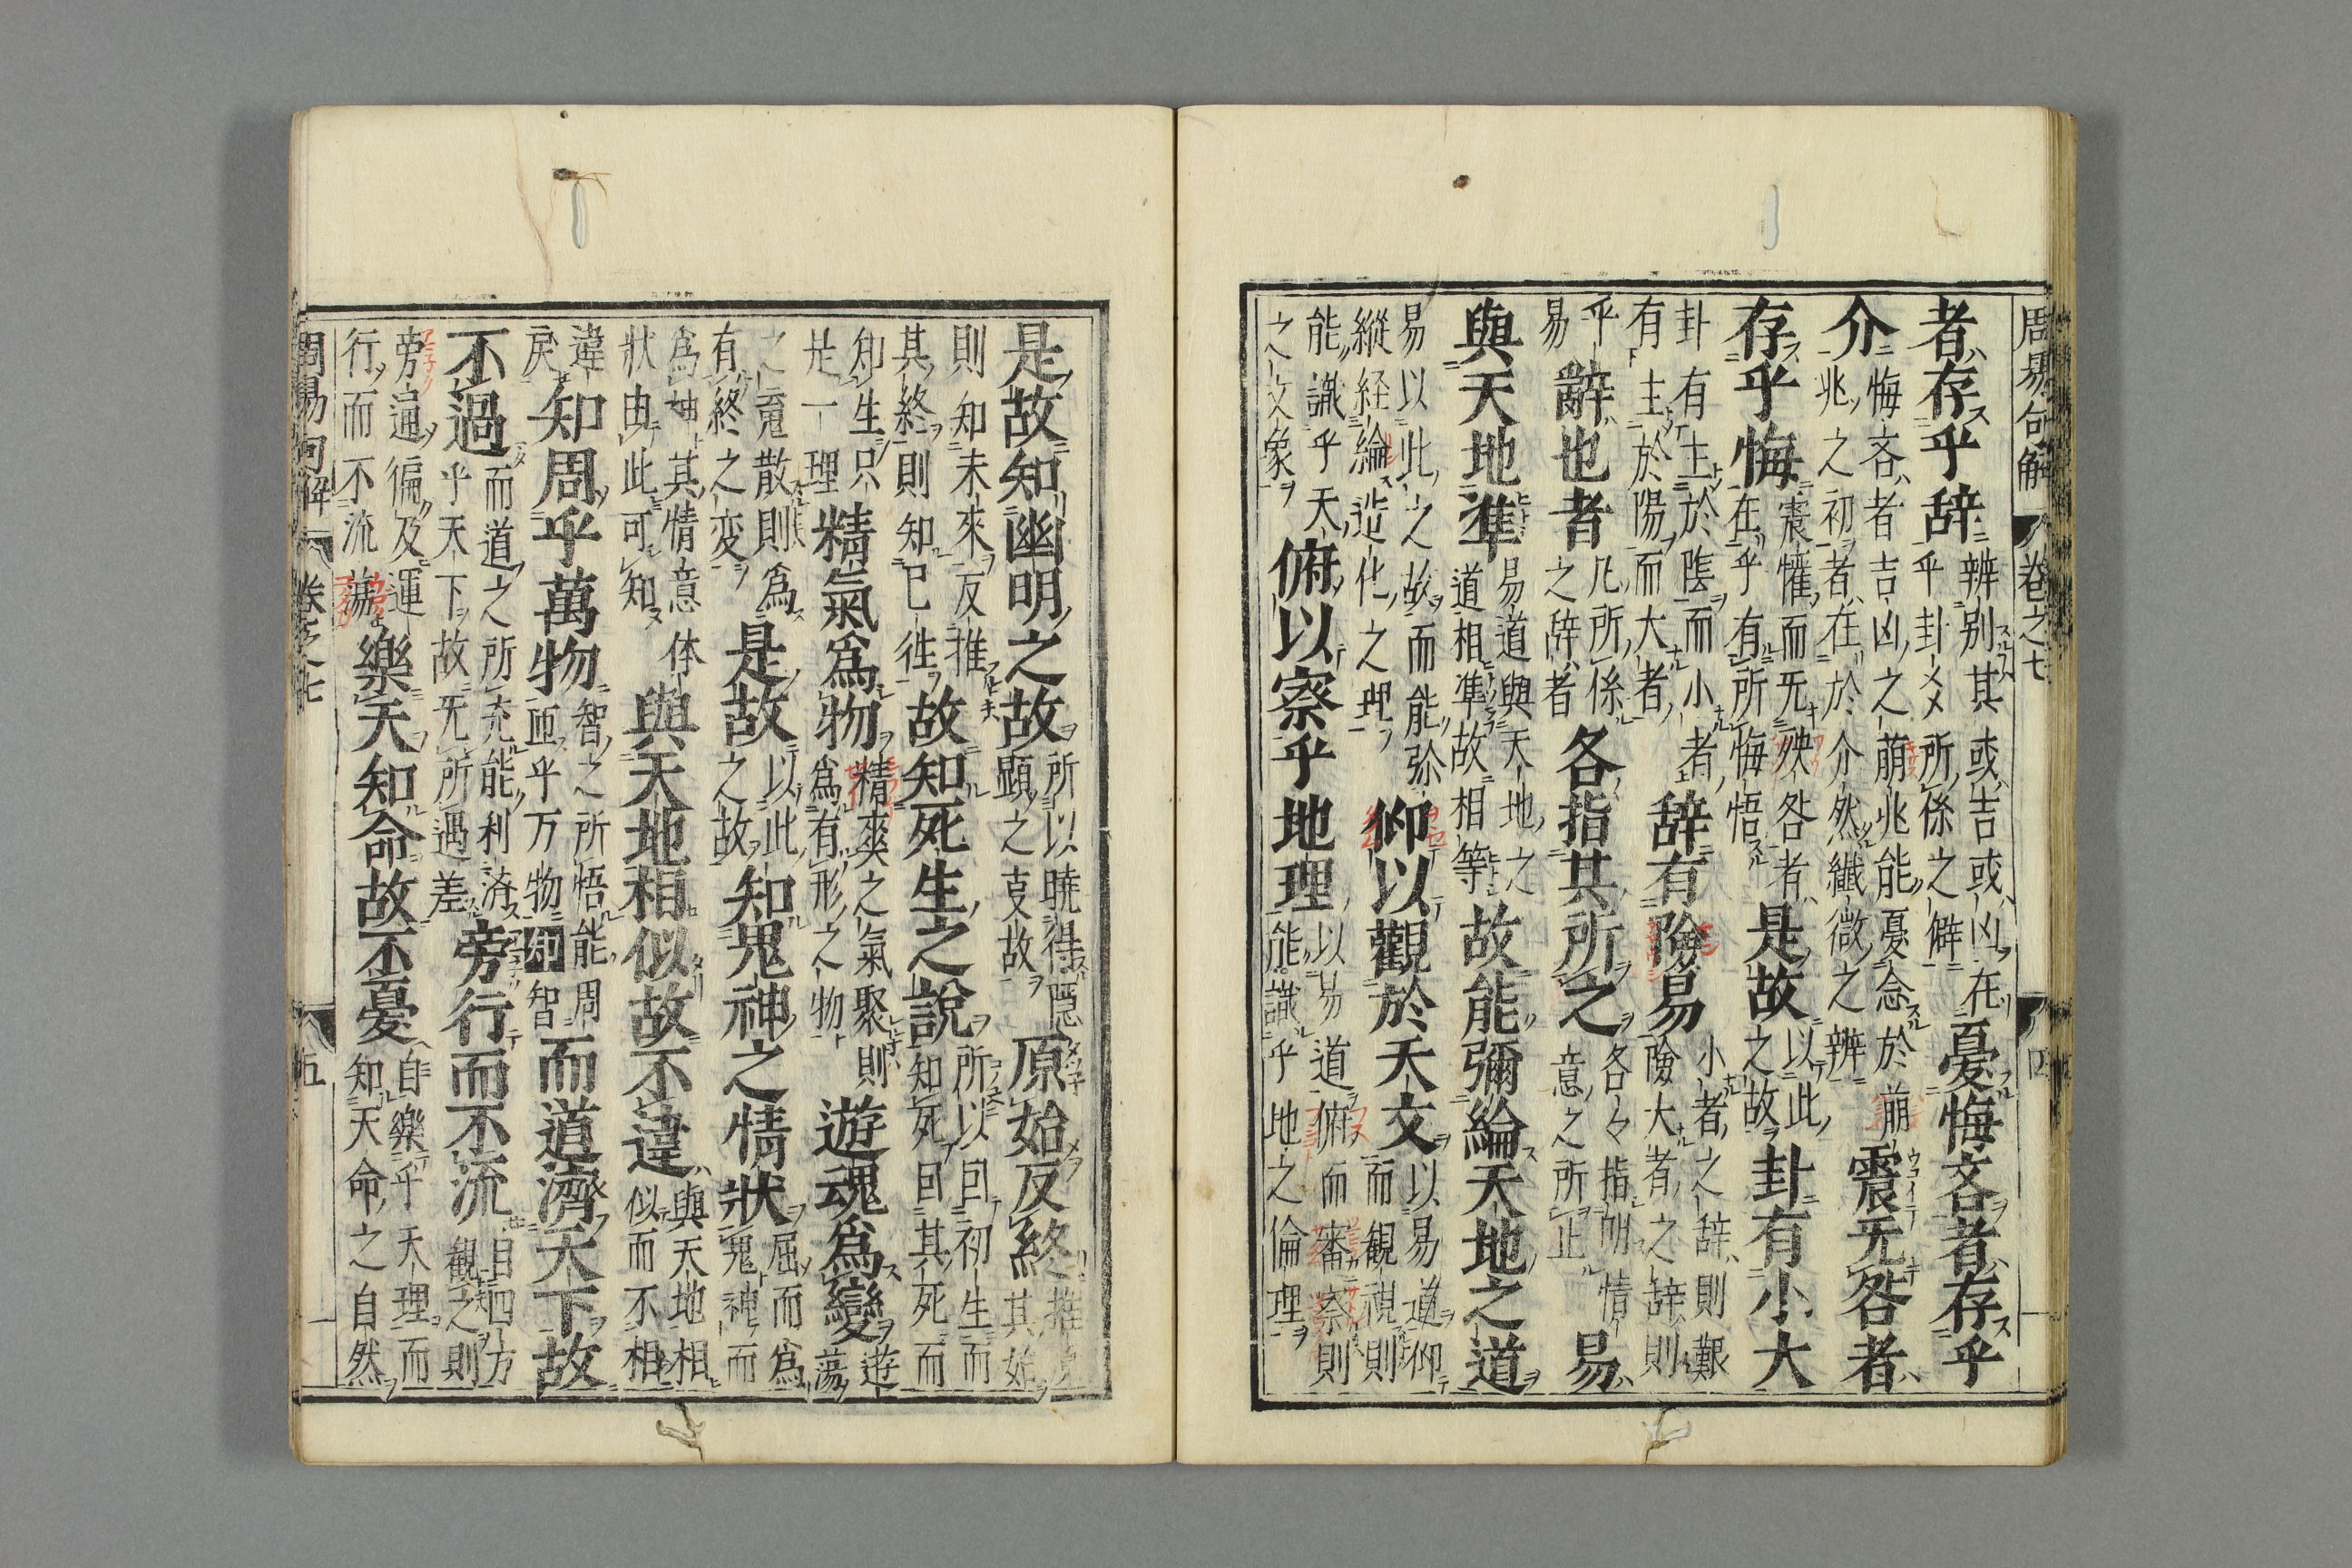 周易句解 卷之七 四
者存乎辞辨別其或吉或凶在乎卦爻所係之辞憂悔吝者存乎
介悔吝者吉凶之萠兆能憂念於萠兆之初者在於介然纖微之辨震无咎者
存乎悔震懼而无殃咎者在乎有所悔悟是故以此之故卦有小大
卦有主於陰而小者有主於陽而大者辞有險易小者之辞則艱險大者之辞則
乎易辭也者凡所係之辞者各指其所之各々指明情意之所正易
與天地準易道與天地之道相準故相等故能彌綸天地之道
易以此之故而能弥縱経綸造化之理仰以觀於天文以易道仰而観視則
能識乎天之文象俯以察乎地理以易道俯而審察則能識乎地之倫理
是故知幽明之故所以曉得隱顯之㕝故原始反終推原其始
則知未來反推其終則知已徃故知死生之說所以回初生而知死回其死而
知生只是一理精氣爲物精爽之氣聚則爲有形之物遊魂爲變遊蕩
之䰟散則爲有終之変是故以此之故知鬼神之情狀屈而爲鬼神而
爲神其情意体狀由此可知與天地相似故不違與天地相似而不相
違戾知周乎萬物智之所悟能周匝乎万物知智而道濟天下故
不過而道之所充能利済乎天下故无所過差旁行而不流目四方観之則
旁遍徧及運行而不流蕩樂天知命故不憂自樂乎天理而知天命之自然
周易句解 卷之七 五